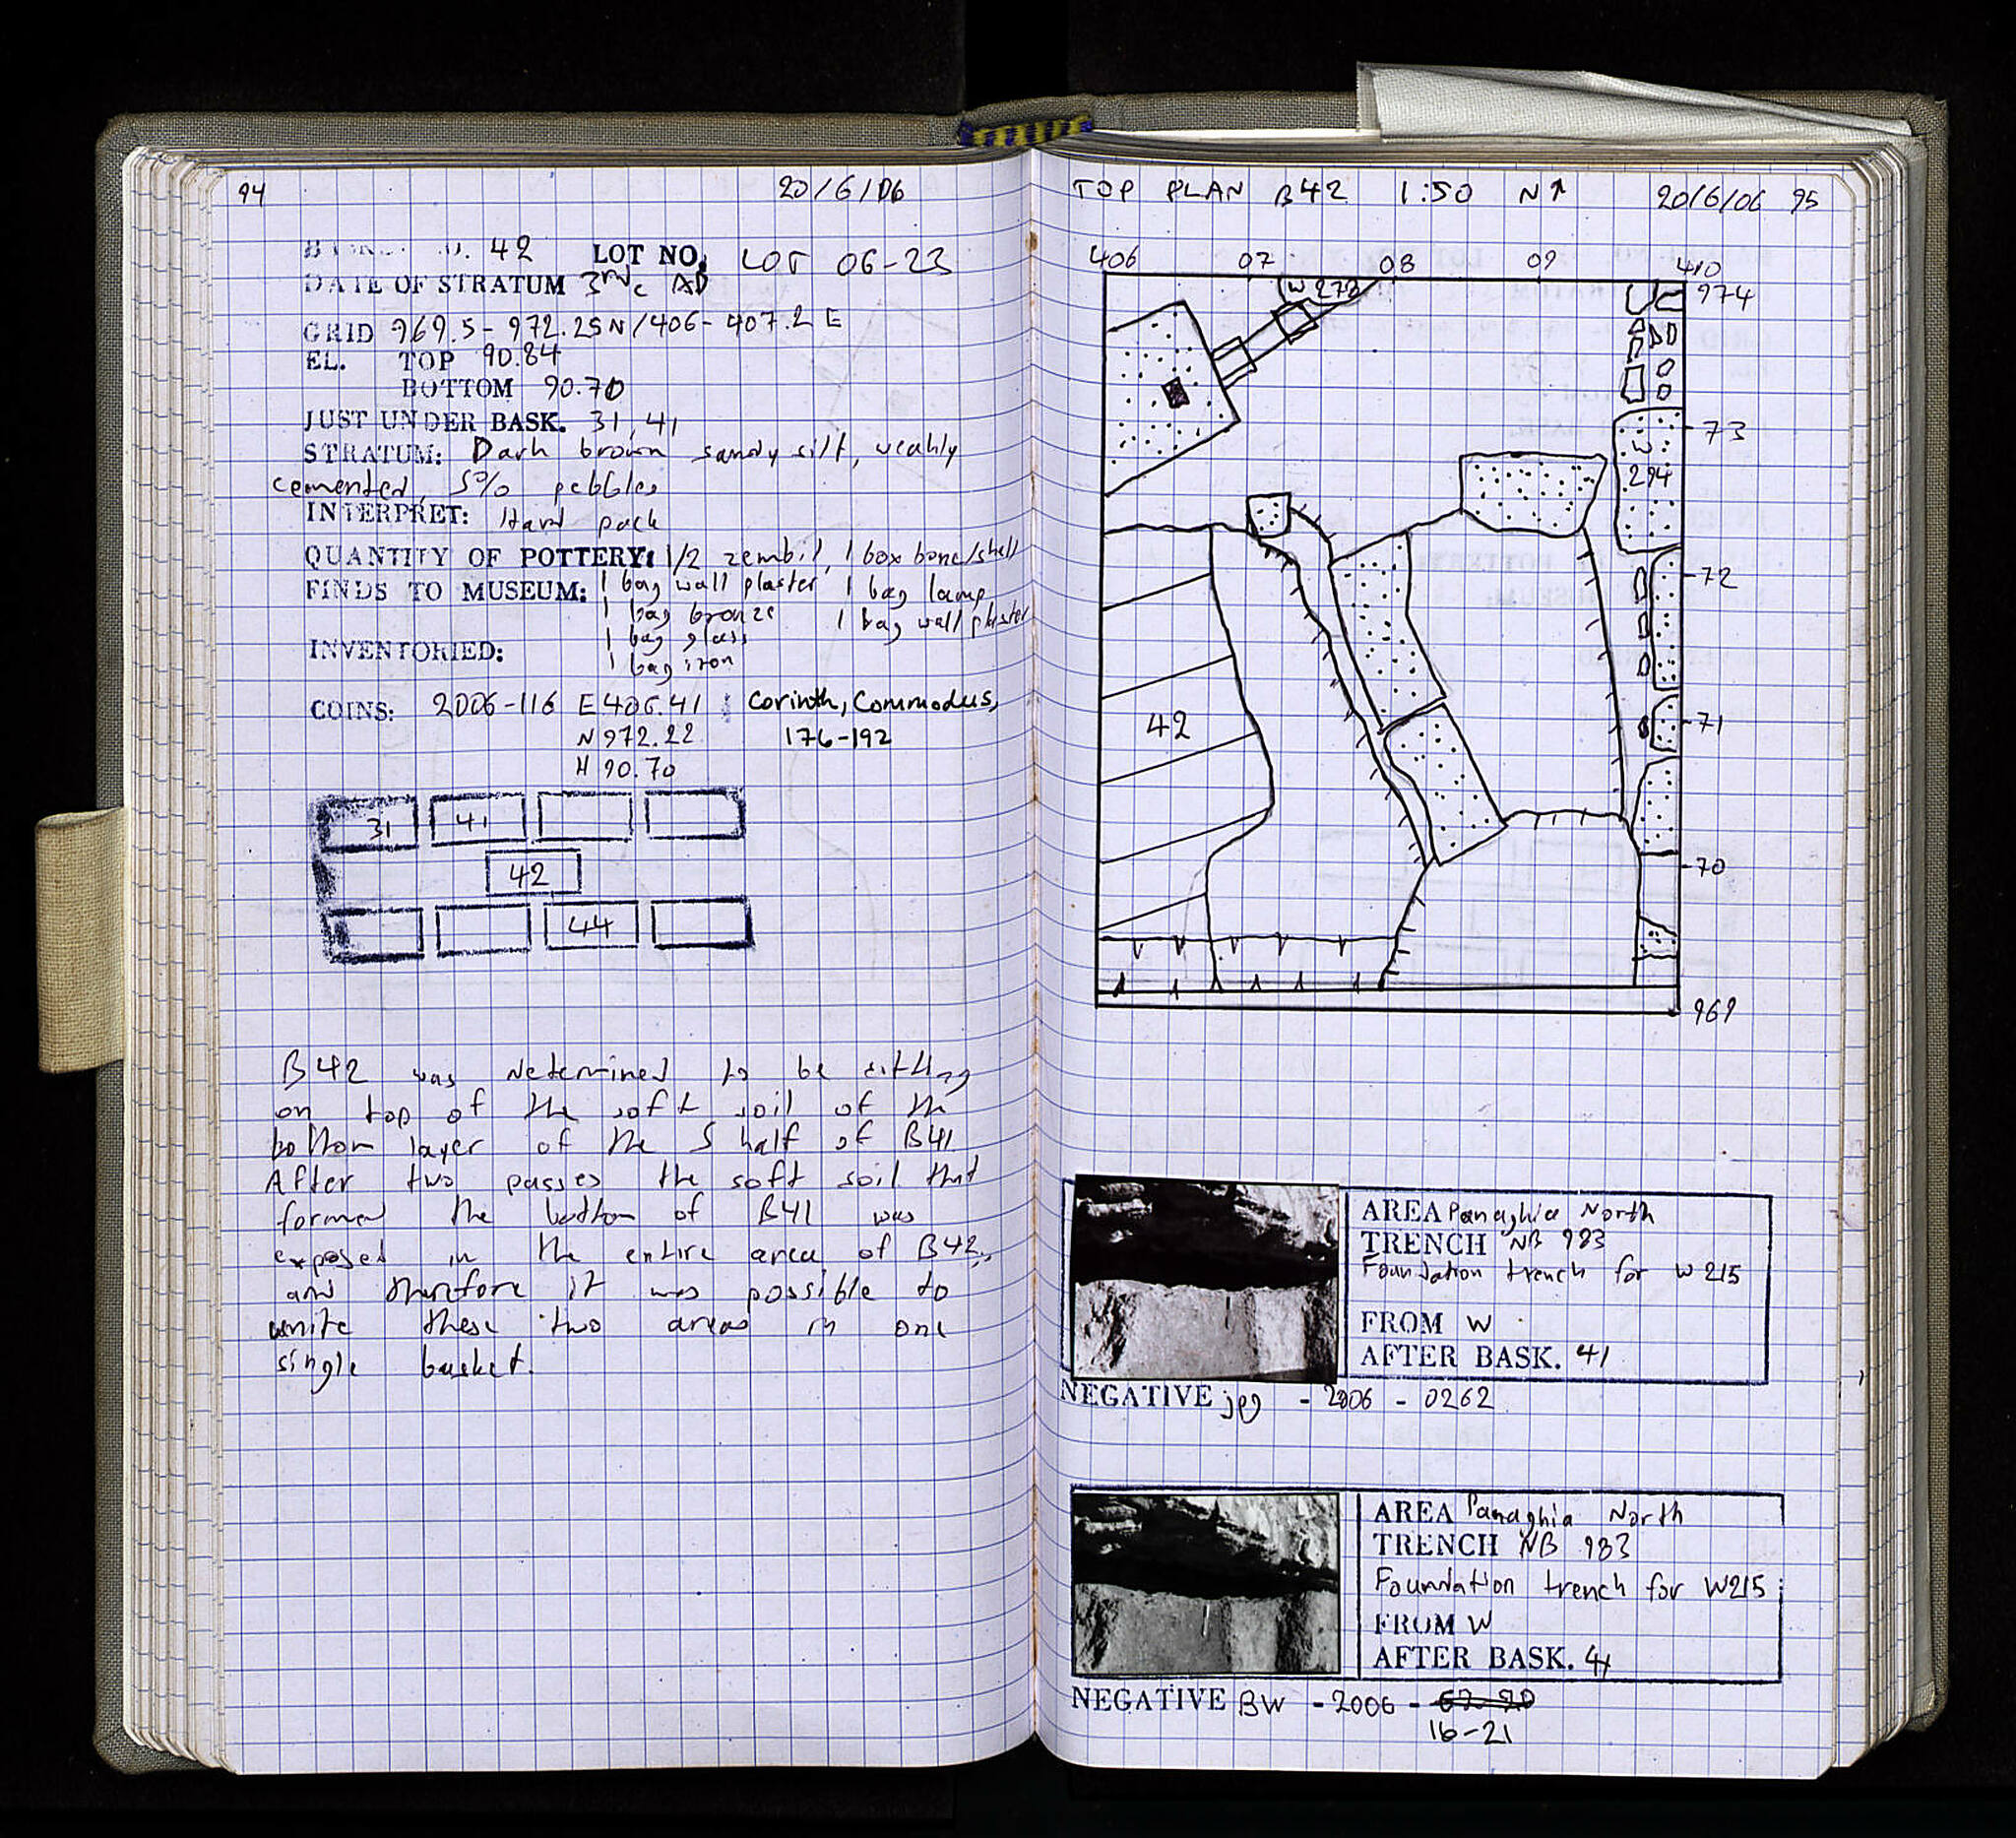 94 20/6/06
42 LOT NO. LOT 06-23
DATE OF STRATUM 3rd c AD
GRID 969.5-972.25N/406-407.2 E
EL. TOP 90.84
BOTTOM 90.70
JUST UNDER BASK. 31, 41
STRATUM: Dark brown sandy silt, weakly
cemented, 5% pebbles
INTERPRET: Hard pack
QUANTITY OF POTTERY: 1/2 zembil, 1 box bone/shell
FINDS TO MUSEUM: 1 bag wall plaster 1 bag lamp
1 bag bronze 1 bag wall plaster
1 bag glass
INVENTORIED:
1 bag iron
COINS: 2006-116 E 406.41 Corinth, Commodus,
N 972.22 176-192
H 90.70
31 41
42
44
B42 was determined to be sitting
on top of the soft soil of the
bottom layer of the S half of B41.
After two passes the soft soil that
formed the bottom of B41 was
exposed in the entire area of B42,
and therefore it was possible to
unite these two areas in one
single basket.
TOP PLAN B42 1:50 N↑ 20/6/06 95
406 07 08 09 410
W 278
974
73
W
294
72
42
71
70
969
AREA Panaghia North
TRENCH NB 983
Foundation trench for W 215
FROM W
AFTER BASK. 41
NEGATIVE jpg - 2006 - 0262
AREA Panaghia North
TRENCH NB 983
Foundation trench for W215
FROM W
AFTER BASK. 41
NEGATIVE BW - 2006 -
16-21